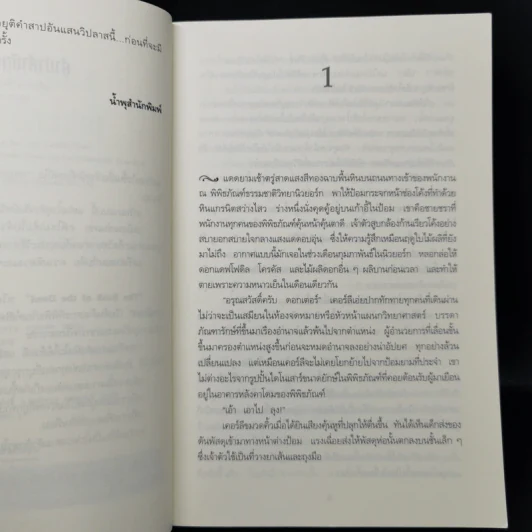 ยุติคำสาปอันแสนวิปลาสนี้...ก่อนที่จะมี
รั้ง
น้ำพุสำนักพิมพ์
1
แดดยามเช้าตรู่สาดแสงสีทองฉาบพื้นหินบนถนนทางเข้าของพนักงาน
ณ พิพิธภัณฑ์ธรรมชาติวิทยานิวยอร์ก พาให้ป้อมกระจกหน้าซุ้มโค้งที่ทำด้วย
หินแกรนิตสว่างไสว ร่างหนึ่งนั่งคุดคู้อยู่บนเก้าอี้ในป้อม เขาคือชายชราที่
พนักงานทุกคนของพิพิธภัณฑ์คุ้นหน้าคุ้นตาดี เจ้าตัวสูบกล้องก้านเรียวโค้งอย่าง
สบายอกสบายใจกลางแสงแดดอบอุ่น ซึ่งให้ความรู้สึกเหมือนฤดูใบไม้ผลิที่ยัง
มาไม่ถึง อากาศแบบนี้มักเจอในช่วงเดือนกุมภาพันธ์ในนิวยอร์ก หลอกล่อให้
ดอกแดฟโฟดิล โครคัส และไม้ผลิดอกอื่น ๆ ผลิบานก่อนเวลา และทำให้
ตายเพราะความหนาวเย็นในเดือนเดียวกัน
"อรุณสวัสดิ์ครับ ดอกเตอร์" เคอร์ลีเอ่ยปากทักทายทุกคนที่เดินผ่าน
ไม่ว่าจะเป็นเสมียนในห้องจดหมายหรือหัวหน้าแผนกวิทยาศาสตร์ บรรดา
ภัณฑารักษ์ที่ขึ้นมาเรืองอำนาจแล้วพ้นไปจากตำแหน่ง ผู้อำนวยการที่เลื่อนชั้น
ขึ้นมาครองตำแหน่งสูงขึ้นก่อนจะหมดอำนาจลงอย่างน่าอัปยศ ทุกอย่างล้วน
เปลี่ยนแปลง แต่เหมือนเคอร์ลีจะไม่เคยโยกย้ายไปจากป้อมยามที่ประจำ เขา
ไม่ต่างอะไรจากรูปปั้นไดโนเสาร์ขนาดยักษ์ในพิพิธภัณฑ์ที่คอยต้อนรับผู้มาเยือน
อยู่ในอาคารหลังคาโดมของพิพิธภัณฑ์
"เอ้า เอาไป ลุง!"
เคอร์ลีขมวดคิ้วเมื่อได้ยินเสียงคุ้นหูที่ปลุกให้ตื่นขึ้น ทันได้เห็นเด็กส่งของ
ดันพัสดุเข้ามาทางหน้าต่างป้อม แรงเฉื่อยส่งให้พัสดุห่อนั้นตกลงบนชั้นเล็ก ๆ
ซึ่งเจ้าตัวใช้เป็นที่วางยาเส้นและถุงมือ